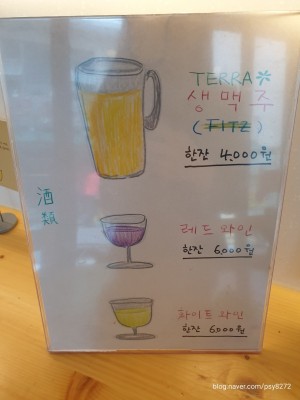 TERRA
생맥주
(FITZ)
한잔 4,000원
酒
類
레드 와인
한잔 6,000원
화이트 와인
한잔 6,000원
blog.naver.com/psy8272